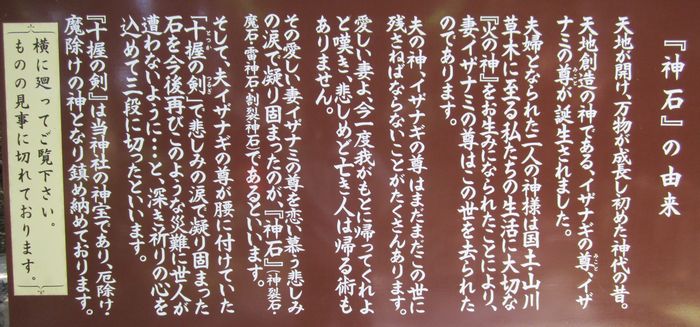 『神石』の由来
天地が開け、万物が成長し初めた神代の昔。
天地創造の神である、イザナギの尊、イザ
ナミの尊が誕生されました。
夫婦となられた二人の神様は国土・山川
草木に至る私たちの生活に大切な
『火の神』をお生みになられたことにより、
妻イザナミの尊はこの世を去られた
のであります。
夫の神、イザナギの尊はまだまだこの世に
残さねばならないことがたくさんあります。
愛しい妻よ、今一度我がもとに帰ってくれよ
と嘆き、悲しめど亡き人は帰る術も
ありません。
その愛しい妻イザナミの尊を恋い慕う悲しみ
の涙で凝り固まったのが、『神石』(神裂石・
魔石・雷神石・割裂神石)であるといいます。
そして、夫イザナギの尊が腰に付けていた
「十握の剣」で悲しみの涙で凝り固まった
石を今後再びこのような災難に世人が
遭わないように・・と、深き祈りの心を
込めて三段に切ったといいます。
『十握の剣』は当神社の神宝であり、厄除け・
魔除けの神となり鎮め納めております。
横に廻ってご覧下さい。
ものの見事に切れております。